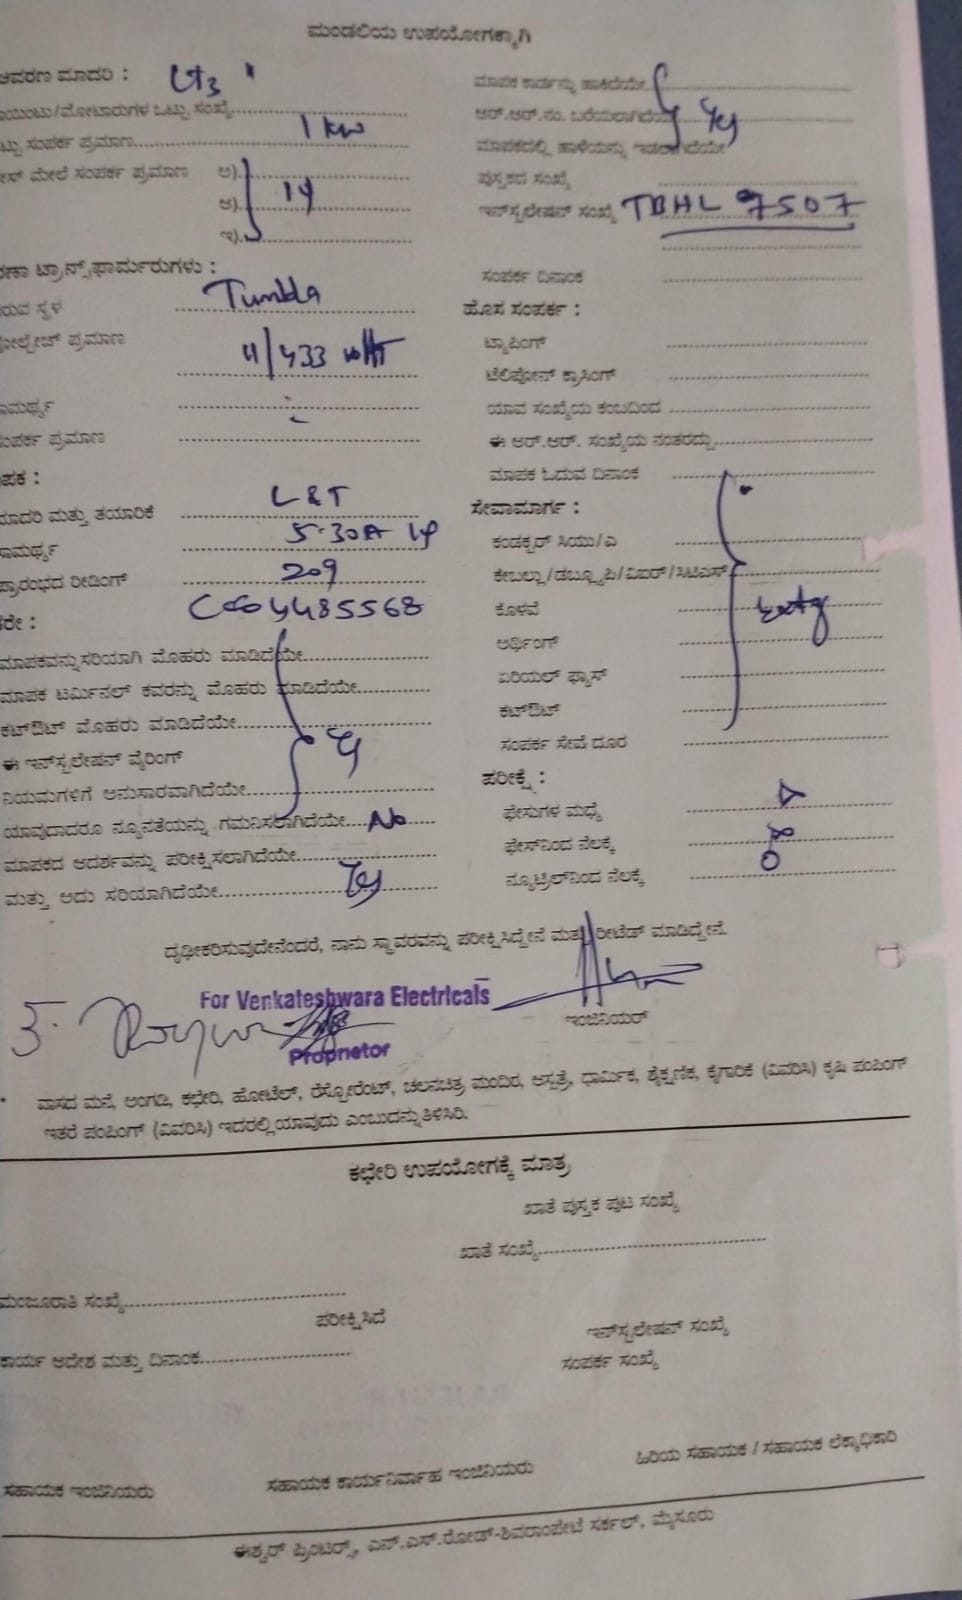 ಮಂಡಲಿಯ ಉಪಯೋಗಕ್ಕಾಗಿ
ಆವರಣ ಮಾದರಿ : Lt3
ಒಟ್ಟು ಸಂಖ್ಯೆ
ಸಂಪರ್ಕ ಪ್ರಮಾಣ 1 kw
ಮೇಲೆ ಸಂಪರ್ಕ ಪ್ರಮಾಣ ಅ)
ಆ)
ಇ)
ಟ್ರಾನ್ಸ್‌ಫಾರ್ಮರುಗಳು :
ಸ್ಥಳ Tumbla
ಪ್ರಮಾಣ 11/433 volt
ಪ್ರಮಾಣ
ಮಾದರಿ ಮತ್ತು ತಯಾರಿಕೆ L&T
5-30A
ಪ್ರಾರಂಭದ ರೀಡಿಂಗ್ 209
ಮಾಪಕವನ್ನು ಸರಿಯಾಗಿ ಮೊಹರು ಮಾಡಿದೆಯೇ
ಮಾಪಕ ಟರ್ಮಿನಲ್ ಕವರನ್ನು ಮೊಹರು ಮಾಡಿದೆಯೇ
ಕಟ್‌ಔಟ್ ಮೊಹರು ಮಾಡಿದೆಯೇ
ಈ ಇನ್‌ಸ್ಟಲೇಷನ್ ವೈರಿಂಗ್
ನಿಯಮಗಳಿಗೆ ಅನುಸಾರವಾಗಿದೆಯೇ
ಯಾವುದಾದರೂ ನ್ಯೂನತೆಯನ್ನು ಗಮನಿಸಲಾಗಿದೆಯೇ No
ಮಾಪಕದ ಆದರ್ಶವನ್ನು ಪರೀಕ್ಷಿಸಲಾಗಿದೆಯೇ
ಮತ್ತು ಅದು ಸರಿಯಾಗಿದೆಯೇ Yes
ಮಾಪಕ ಕಾರ್ಡನ್ನು ಹಾಕಿದೆಯೇ
ಆರ್.ಆರ್.ನಂ. ಬರೆಯಲಾಗಿದೆಯೇ Yes
ಮಾಪಕದಲ್ಲಿ ಹಾಳೆಯನ್ನು ಇಡಲಾಗಿದೆಯೇ
ಪುಸ್ತಕದ ಸಂಖ್ಯೆ
ಇನ್‌ಸ್ಟಲೇಷನ್ ಸಂಖ್ಯೆ TBHL 7507
ಸಂಪರ್ಕ ದಿನಾಂಕ
ಹೊಸ ಸಂಪರ್ಕ :
ಟ್ಯಾಪಿಂಗ್
ಟೆಲಿಪೋನ್ ಕ್ರಾಸಿಂಗ್
ಯಾವ ಸಂಖ್ಯೆಯ ಕಂಬದಿಂದ
ಈ ಆರ್.ಆರ್. ಸಂಖ್ಯೆಯ ನಂತರದ್ದು
ಮಾಪಕ ಓದುವ ದಿನಾಂಕ
ಸೇವಾಮಾರ್ಗ :
ಕಂಡಕ್ಟರ್ ಸಿಯು/ಎ
ಕೇಬಲ್ಲು/ಡಬ್ಲ್ಯೂಪಿ/ವಿಐರ್/ಸಿಟಿಎಸ್
ಕೊಳವೆ
ಅರ್ಥಿಂಗ್
ಏರಿಯಲ್ ಫ್ಯೂಸ್
ಕಟ್‌ಔಟ್
ಸಂಪರ್ಕ ಸೇವೆ ದೂರ
ಪರೀಕ್ಷೆ :
ಫೇಸುಗಳ ಮಧ್ಯೆ
ಫೇಸ್‌ನಿಂದ ನೆಲಕ್ಕೆ
ನ್ಯೂಟ್ರಲ್‌ನಿಂದ ನೆಲಕ್ಕೆ 0
ದೃಢೀಕರಿಸುವುದೇನೆಂದರೆ, ನಾನು ಸ್ಥಾವರವನ್ನು ಪರೀಕ್ಷಿಸಿದ್ದೇನೆ ಮತ್ತು ರೀಟೆಡ್ ಮಾಡಿದ್ದೇನೆ.
For Venkateshwara Electricals
ಇಂಜಿನಿಯರ್
Proprietor
* ವಾಸದ ಮನೆ, ಅಂಗಡಿ, ಕಛೇರಿ, ಹೋಟೆಲ್, ರೆಸ್ಟೋರೆಂಟ್, ಚಲನಚಿತ್ರ ಮಂದಿರ, ಆಸ್ಪತ್ರೆ, ಧಾರ್ಮಿಕ, ಶೈಕ್ಷಣಿಕ, ಕೈಗಾರಿಕೆ (ವಿವರಿಸಿ) ಕೃಷಿ ಪಂಪಿಂಗ್
ಇತರೆ ಪಂಪಿಂಗ್ (ವಿವರಿಸಿ) ಇದರಲ್ಲಿ ಯಾವುದು ಎಂಬುದನ್ನು ತಿಳಿಸಿರಿ.
ಕಛೇರಿ ಉಪಯೋಗಕ್ಕೆ ಮಾತ್ರ
ಖಾತೆ ಪುಸ್ತಕ ಪುಟ ಸಂಖ್ಯೆ
ಖಾತೆ ಸಂಖ್ಯೆ
ಮಂಜೂರಾತಿ ಸಂಖ್ಯೆ
ಪರೀಕ್ಷಿಸಿದೆ
ಇನ್‌ಸ್ಟಲೇಷನ್ ಸಂಖ್ಯೆ
ಕಾರ್ಯ ಆದೇಶ ಮತ್ತು ದಿನಾಂಕ
ಸಂಪರ್ಕ ಸಂಖ್ಯೆ
ಸಹಾಯಕ ಇಂಜಿನಿಯರು ಸಹಾಯಕ ಕಾರ್ಯನಿರ್ವಾಹ ಇಂಜಿನಿಯರು ಹಿರಿಯ ಸಹಾಯಕ / ಸಹಾಯಕ ಲೆಕ್ಕಾಧಿಕಾರಿ
ಈಶ್ವರ್ ಪ್ರಿಂಟರ್ಸ್, ಎನ್.ಎಸ್.ರೋಡ್-ಶಿವರಾಂಪೇಟೆ ಸರ್ಕಲ್, ಮೈಸೂರು